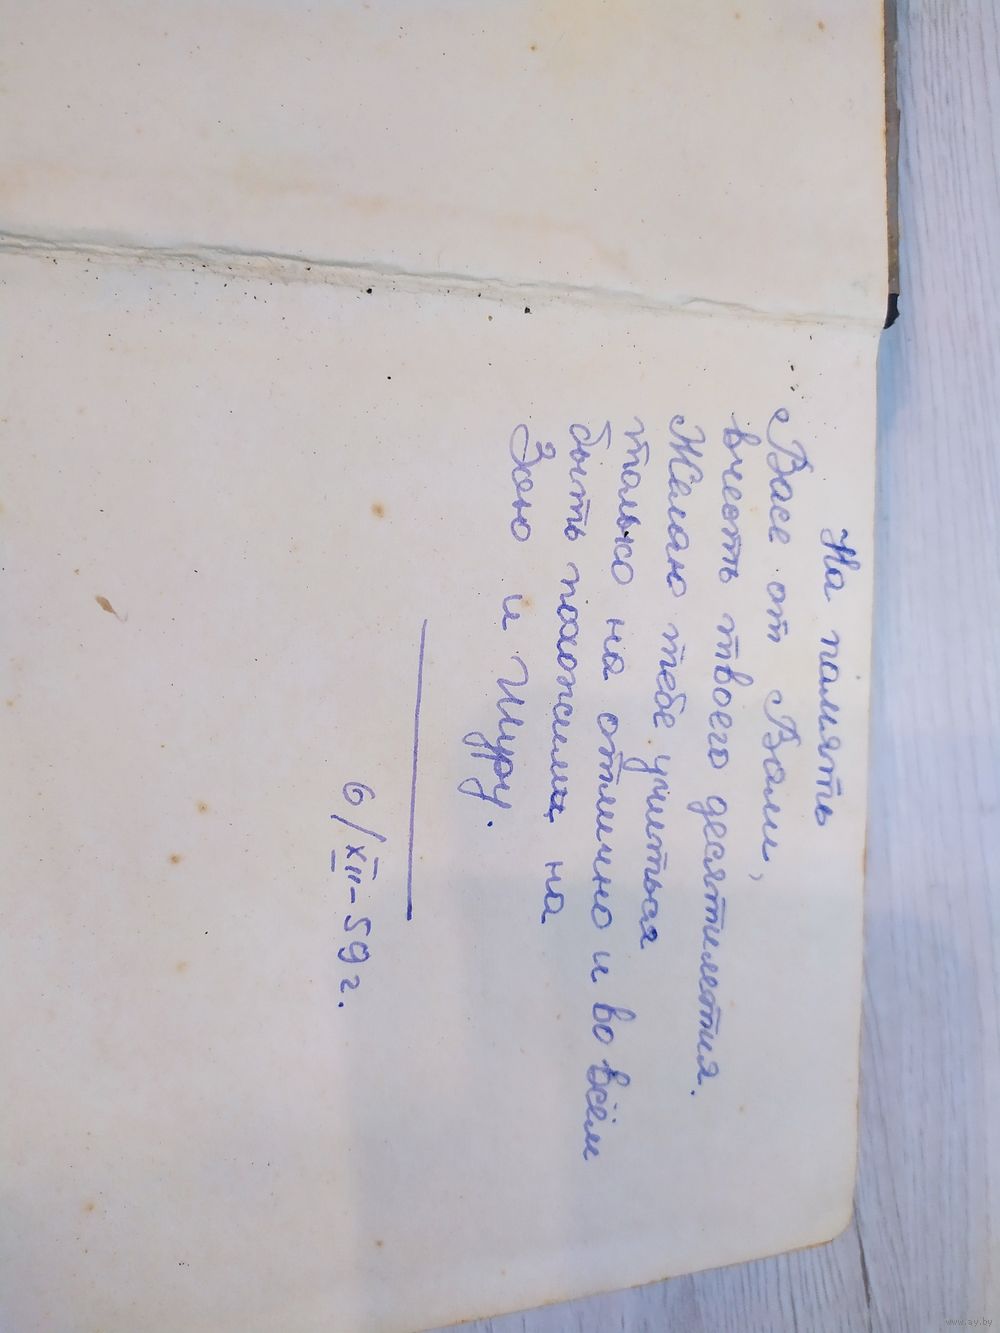 На память
Васе от Вали,
вчесть твоего десятилетия.
Желаю тебе учиться
только на отлично и во всём
быть похожим на
Зою и Шуру.
6/XII-59 г.
www.ay.by